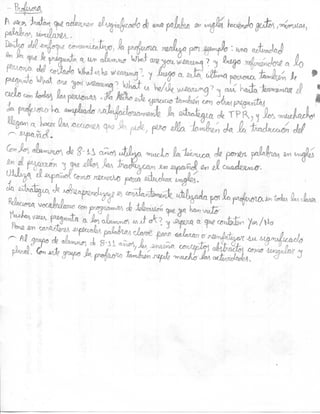 - Profesora
A veces tratan que adivinen el significado de una palabra en inglés haciendo gestos, mímicas,
palabras, similares.
Dentro del enfoque comunicativo, la profesora realiza por ejemplo: una actividad
en la que le pregunta a un alumno What are you wearing? y luego refiriéndose a la
persona del costado What is he wearing?, y luego a esta última persona también le
pregunta What are you wearing? What is he/she wearing? y así hasta terminar el
ciclo con todas las personas. Este ejercicio también con otras preguntas.
La profesora ha empleado satisfactoriamente la estrategia de TPR, y los muchachos
llegan a hacer las acciones que se pide, pero ella también da la traducción del
español.
Con los alumnos de 8-11 años utiliza mucho la técnica de poner palabras en inglés
en el pizarrón y que ellos las traduzcan en español en el cuaderno.
Utiliza el español como recurso para enseñar inglés.
La estrategia de es constantemente utilizada por la profesora en todas las clases
Relaciona vocabulario con programas de televisión que ya han visto
Muchas veces pregunta a los alumnos is it ok? y espera a que contesten Yes/No
Pone en caracteres especiales palabras clave para aclarar o su significado
Al grupo de alumnos de 8-11 años, les enseña conceptos abstractos como singular y
plural. Con este grupo la profesora también repite mucho las actividades.